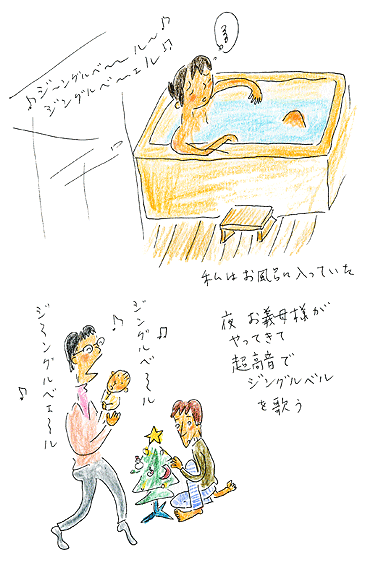 ♪ジングルベ〜ル〜♪
♪ジングルベ〜ェル♪
私はお風呂に入っていた
夜 お義母様が
やってきて
超高音で
ジングルベル
を歌う
ジングルベ〜ル
ジ〜ングルベェ〜ル